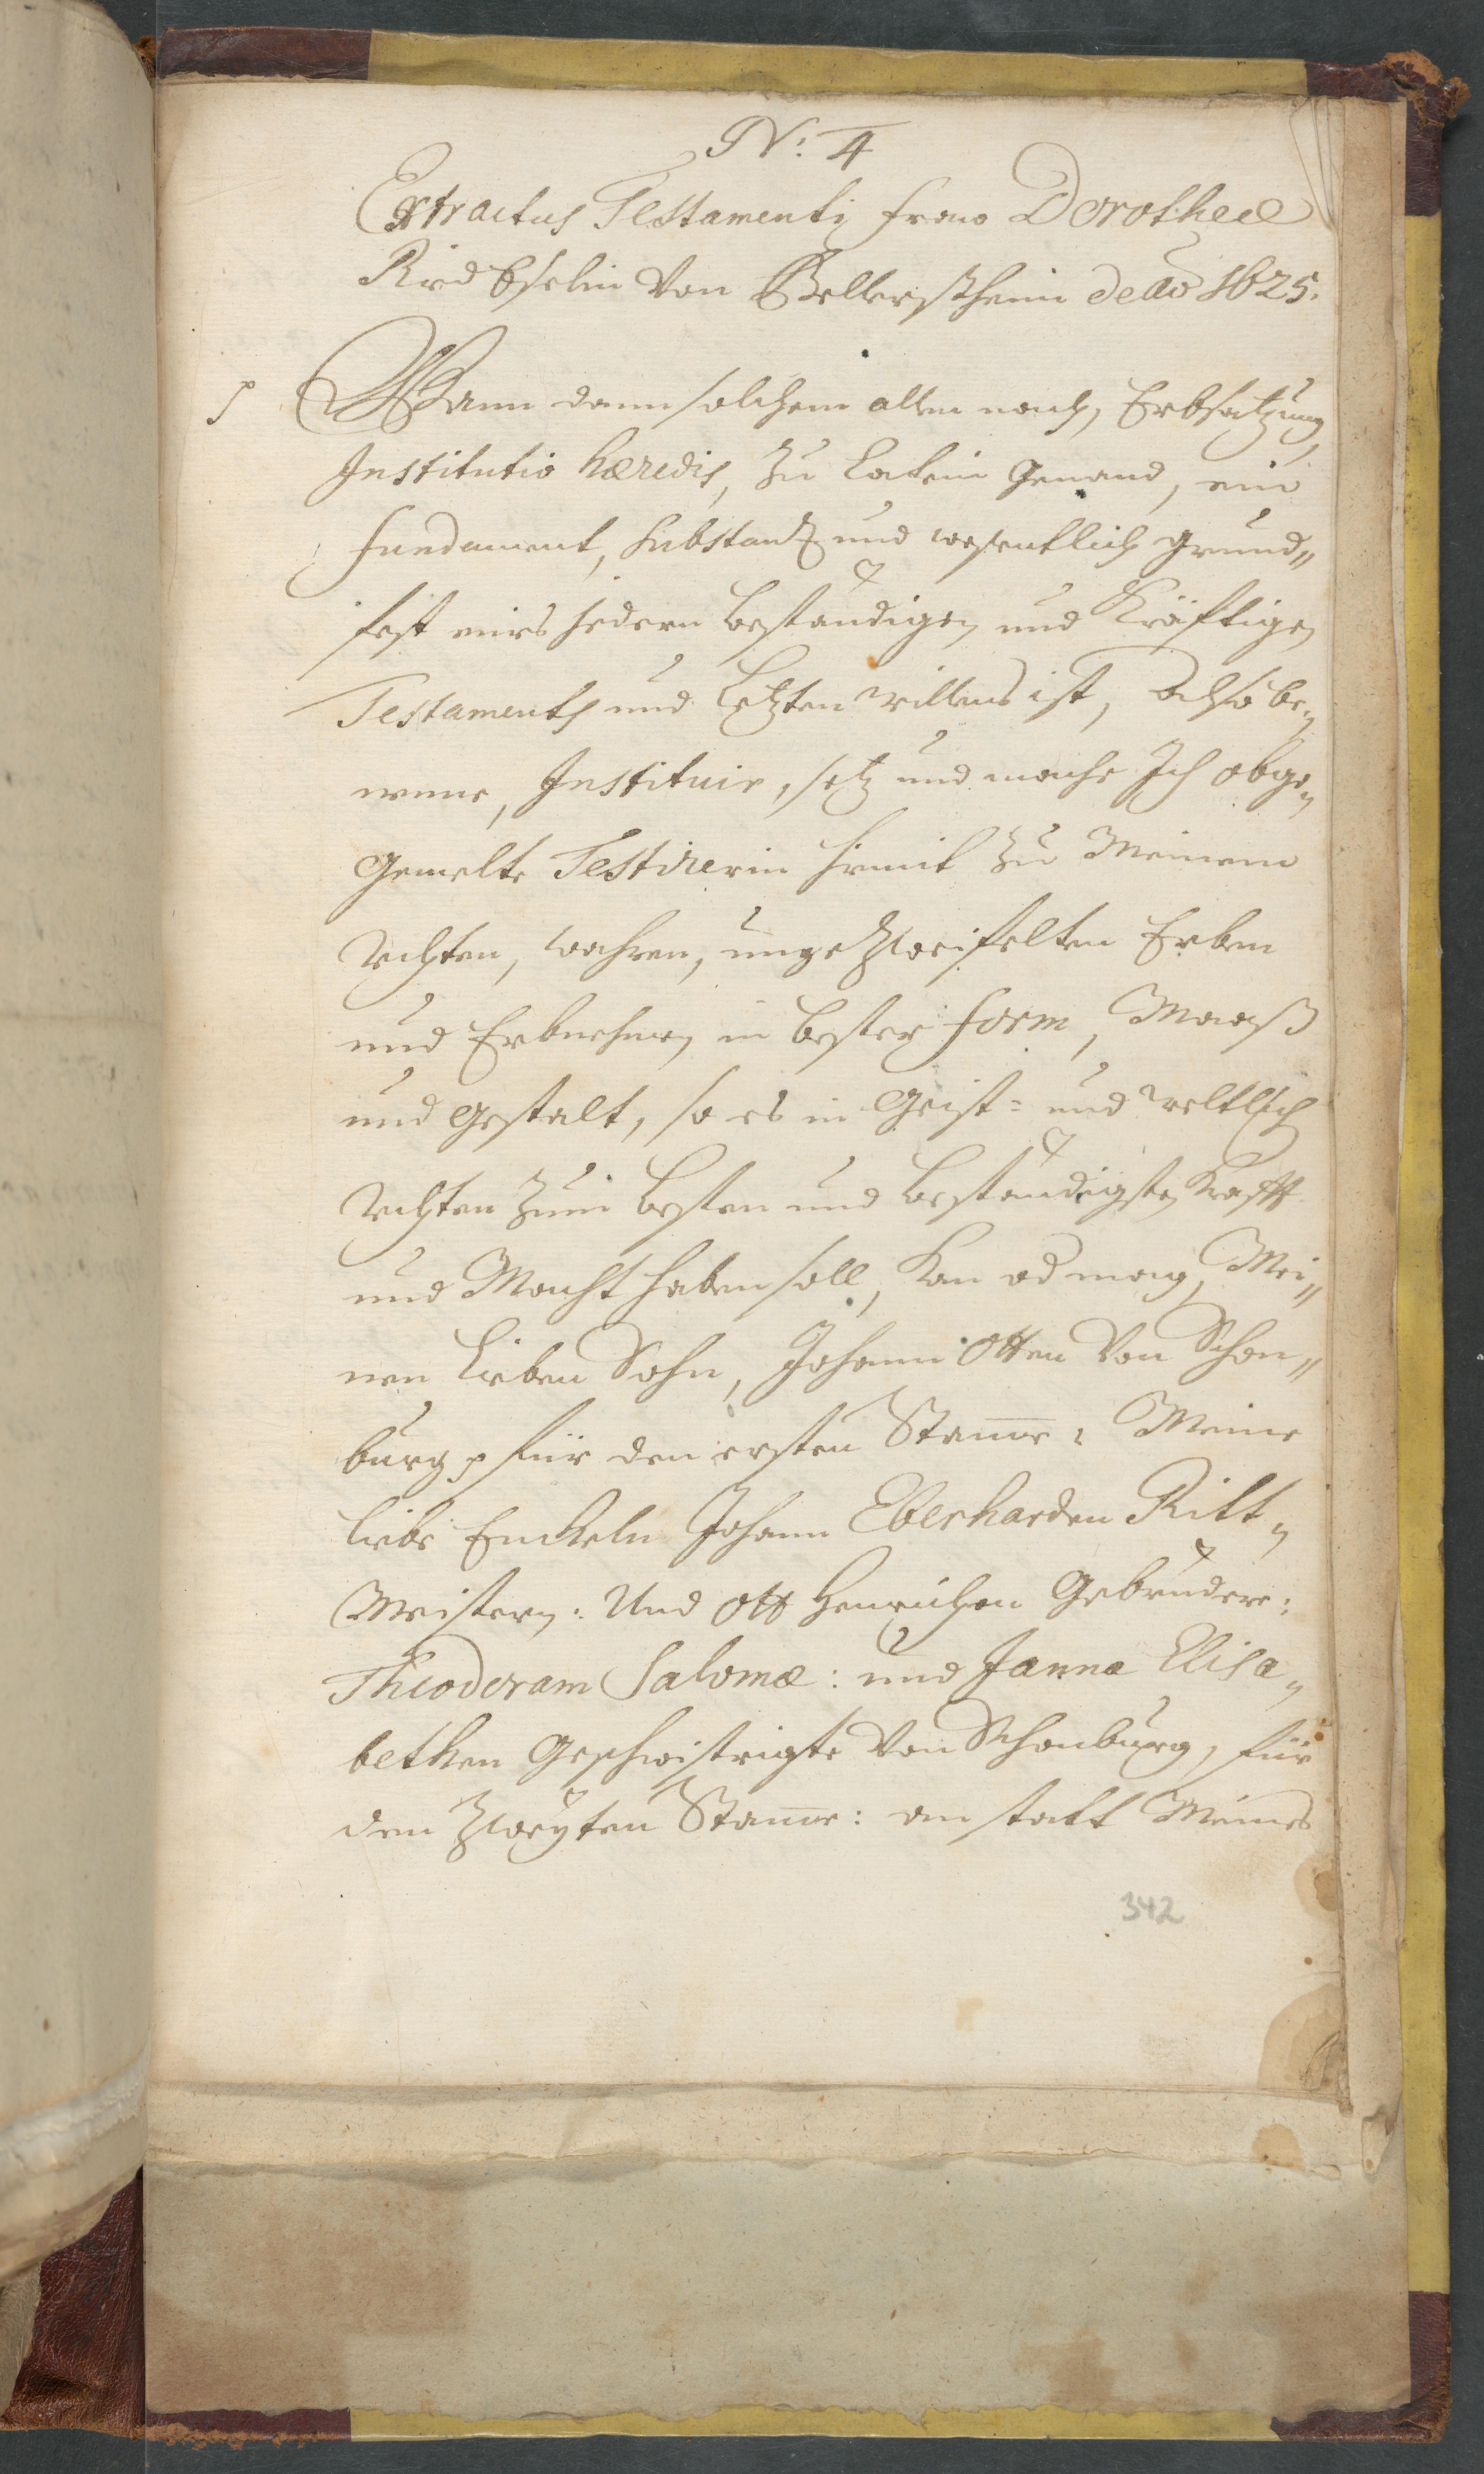 Nº: 4
Extractus Testamenti fraw Dorotheæ
Riedeselin Von Bellersheim de aō 1625.
p Wann dann solchem allem nach, Erbsatzung
Institutio hæredis, zu Latein genand, ein
fundament, substantz und wesentlich grund„
fest eines jedern beständigen und Kräfftigen
Testaments und Letzten willens ist, Alß be„
nenne, Instituir, setz und mache Ich obge„
gemelte Testirerin hiemit zu Meinem
rechten, wahren, ungezweifelten Erben
und Erbnehmen in bester form, Maaß
und gestalt, so es in Geist= und weltlich
rechten zum besten und beständigsten krafft
und Macht haben soll, kan od mag, Mei„
nen lieben Sohn, Johann Otten Von Schon„
burg p für den ersten Stamme: Meine
liebe Enckeln Johann Eberharden Ritt„
Meistern: Und Ott Henrichen Gebrüdere:
Theodoram Salomæ: und Janna Elisa„
bethen Geschwistrigte Von Schonburg, für
den Zweyten Stamme: an statt Meines
342